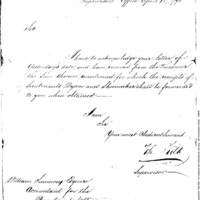 Supervisor's Office April
Sir
I have to acknowledge your letter of
Yesterday's date and have received from the Treasurer
the Sum therein mentioned for which the receipts of
Lieutenants Tyson and Shoemaker shall be forwarded
to you when obtained
I am
Sir
Your most Obedient Servant
Supervisor
William Simmons Esquire
Accountant for the